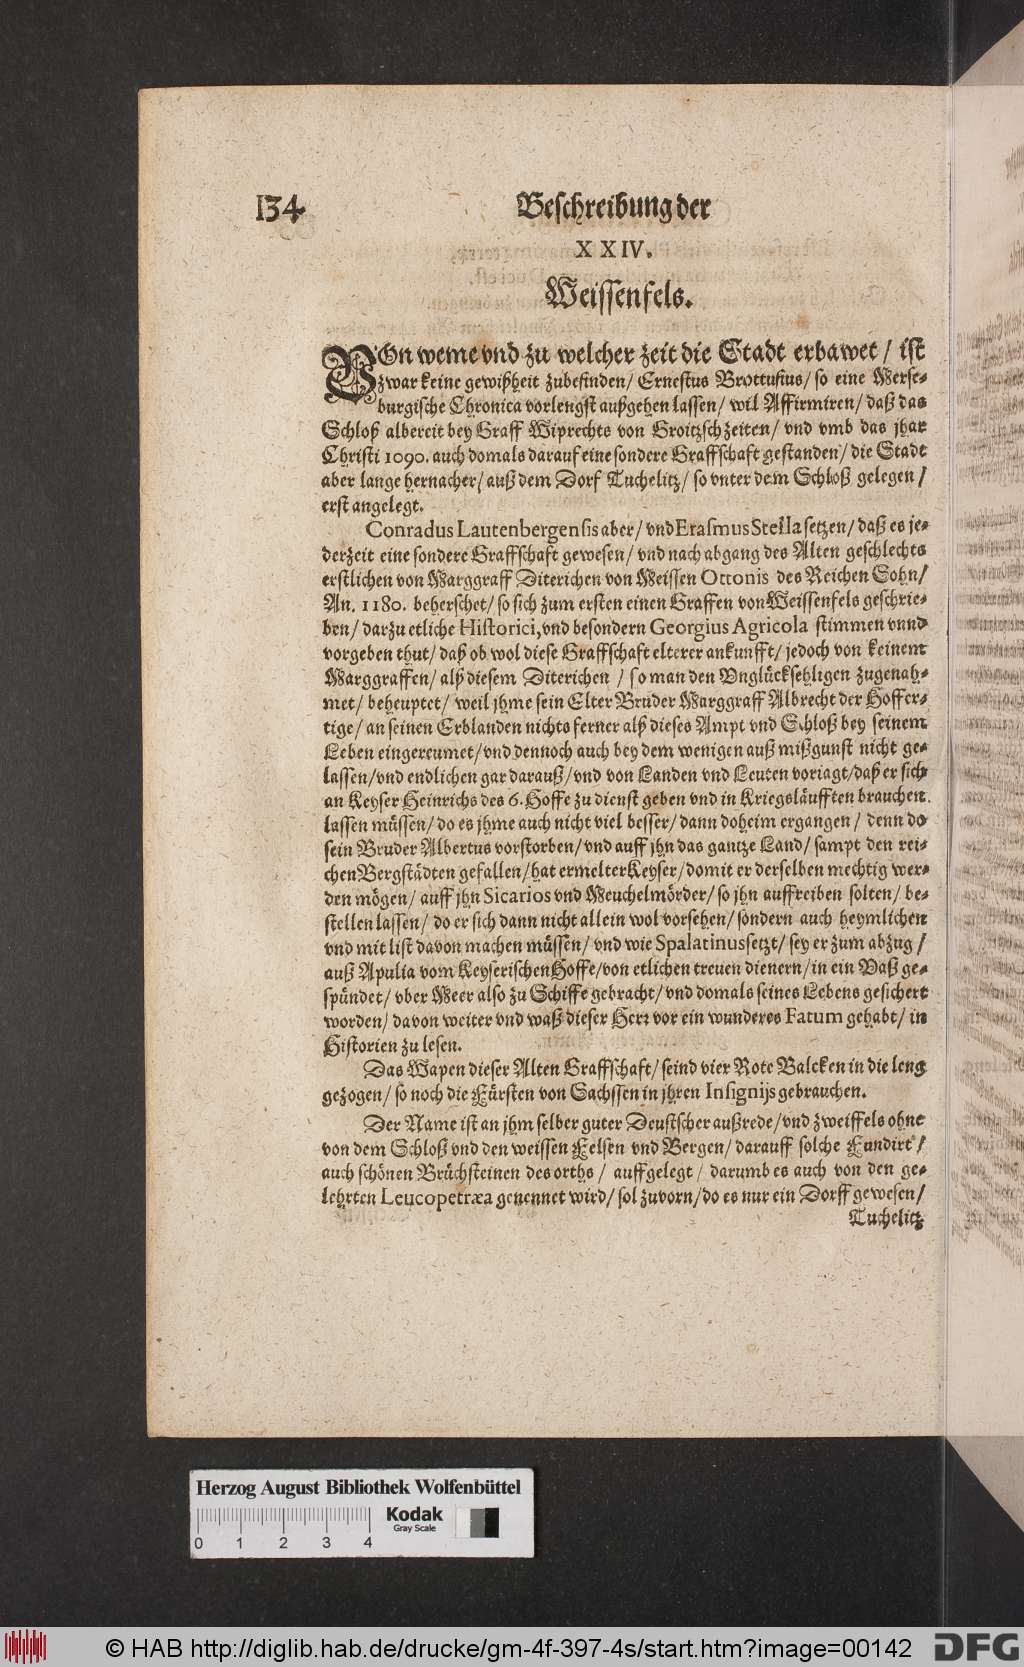 134
Beschreibung der
XXIV.
Weissenfels.
VOn weme vnd zu welcher zeit die Stadt erbawet / ist
zwar keine gewißheit zubefinden / Ernestus Brottufius / so eine Merse-
burgische Chronica vorlengst außgehen lassen / wil Affirmiren / daß das
Schloß albereit bey Graff Wiprechts von Groitzsch zeiten / vnd vmb das jhar
Christi 1090. auch domals darauf eine sondere Graffschaft gestanden / die Stadt
aber lange hernacher / auß dem Dorf Tuchelitz / so vnter dem Schloß gelegen /
erst angelegt.
Conradus Lautenbergensis aber / vnd Erasmus Stella setzen / daß es je-
derzeit eine sondere Graffschaft gewesen / vnd nach abgang des Alten geschlechts
erstlichen von Marggraff Diterichen von Meissen Ottonis des Reichen Sohn /
An. 1180. beherschet / so sich zum ersten einen Graffen von Weissenfels geschrie-
ben / darzu etliche Historici, vnd besondern Georgius Agricola stimmen vnnd
vorgeben thut / daß ob wol diese Graffschaft elterer ankunfft / jedoch von keinem
Marggraffen / alß diesem Diterichen / so man den Vnglücksehligen zugenah-
met / beheuptet / weil jhme sein Elter Bruder Marggraff Albrecht der Hoffer-
tige / an seinen Erblanden nichts ferner alß dieses Ampt vnd Schloß bey seinem
Leben eingereumet / vnd dennoch auch bey dem wenigen auß mißgunst nicht ge-
lassen / vnd endlichen gar darauß / vnd von Landen vnd Leuten voriagt / daß er sich
an Keyser Heinrichs des 6. Hoffe zu dienst geben vnd in Kriegsläufften brauchen
lassen müssen / do es jhme auch nicht viel besser / dann doheim ergangen / denn do
sein Bruder Albertus vorstorben / vnd auff jhn das gantze Land / sampt den rei-
chen Bergstädten gefallen / hat ermelter Keyser / domit er derselben mechtig wer-
den mögen / auff jhn Sicarios vnd Meuchelmörder / so jhn auffreiben solten / be-
stellen lassen / do er sich dann nicht allein wol vorsehen / sondern auch heymlichen
vnd mit list davon machen müssen / vnd wie Spalatinus setzt / sey er zum abzug /
auß Apulia vom Keyserischen Hoffe / von etlichen treuen dienern / in ein Vaß ge-
spündet / vber Meer also zu Schiffe gebracht / vnd domals seines Lebens gesichert
worden / davon weiter vnd waß dieser Herr vor ein wunderes Fatum gehabt / in
Historien zu lesen.
Das Wapen dieser Alten Graffschaft / seind vier Rote Balcken in die leng
gezogen / so noch die Fürsten von Sachssen in jhren Insignijs gebrauchen.
Der Name ist an jhm selber guter Deustscher außrede / vnd zweiffels ohne
von dem Schloß vnd den weissen Felsen vnd Bergen / darauff solche Fundirt /
auch schönen Brüchsteinen des orths / auffgelegt / darumb es auch von den ge-
lehrten Leucopetræa genennet wird / sol zuvorn / do es nur ein Dorff gewesen /
Tuchelitz
Herzog August Bibliothek Wolfenbüttel
Kodak
Gray Scale
0 1 2 3 4
© HAB http://diglib.hab.de/drucke/gm-4f-397-4s/start.htm?image=00142
DFG